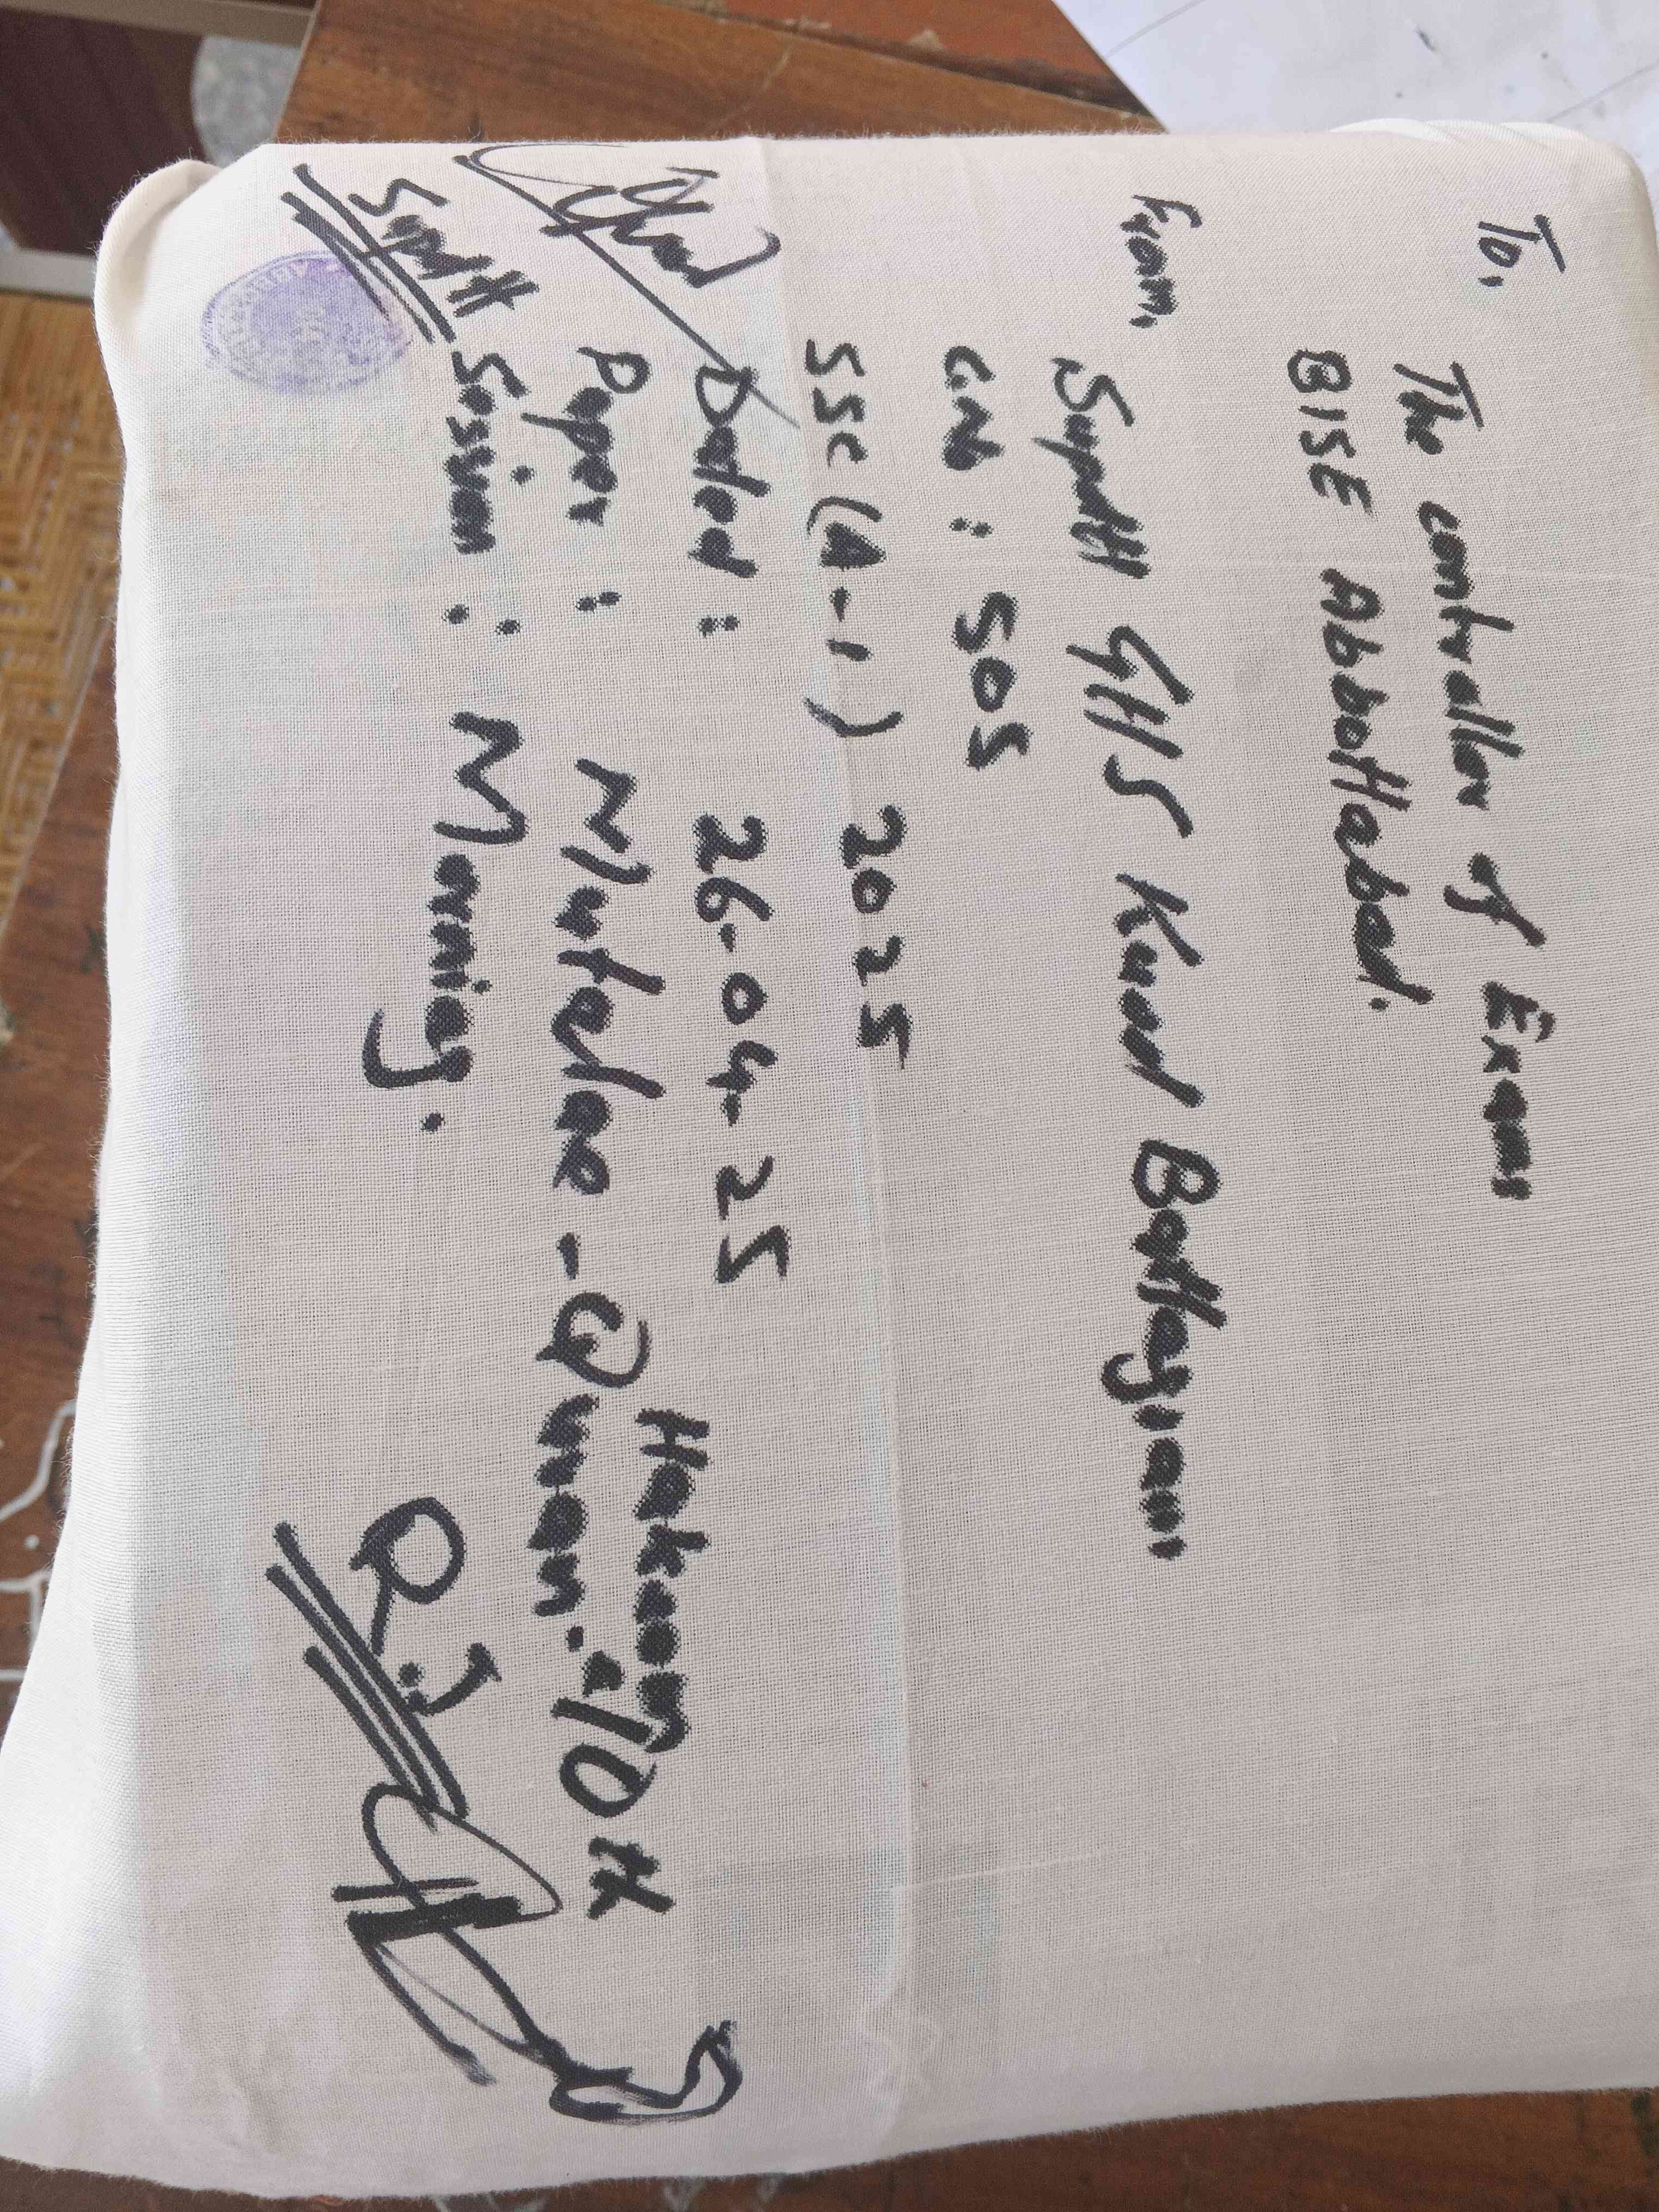 To,
The controller of Exams
BISE Abbottabad.
From,
Supdtt GHS Kund Battagram
CN : 505
SSC (A-1) 2025
Dated : 26-04-25
Paper : Mutalae-Quran. Hakeem /10th
Session : Morning.
Supdtt
R.I